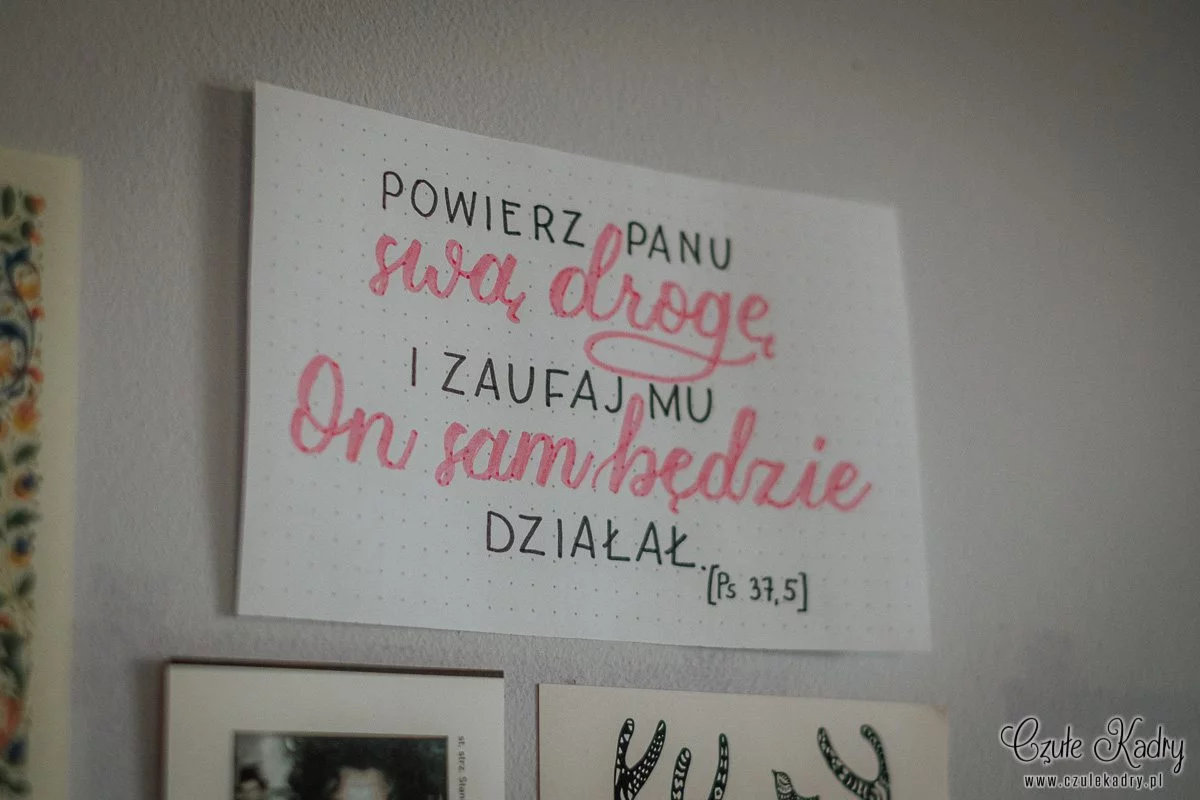 POWIERZ PANU
swą drogę
I ZAUFAJ MU
On sam będzie
DZIAŁAŁ.
[Ps 37,5]
st. strz. Stan
Czułe Kadry
www.czulekadry.pl